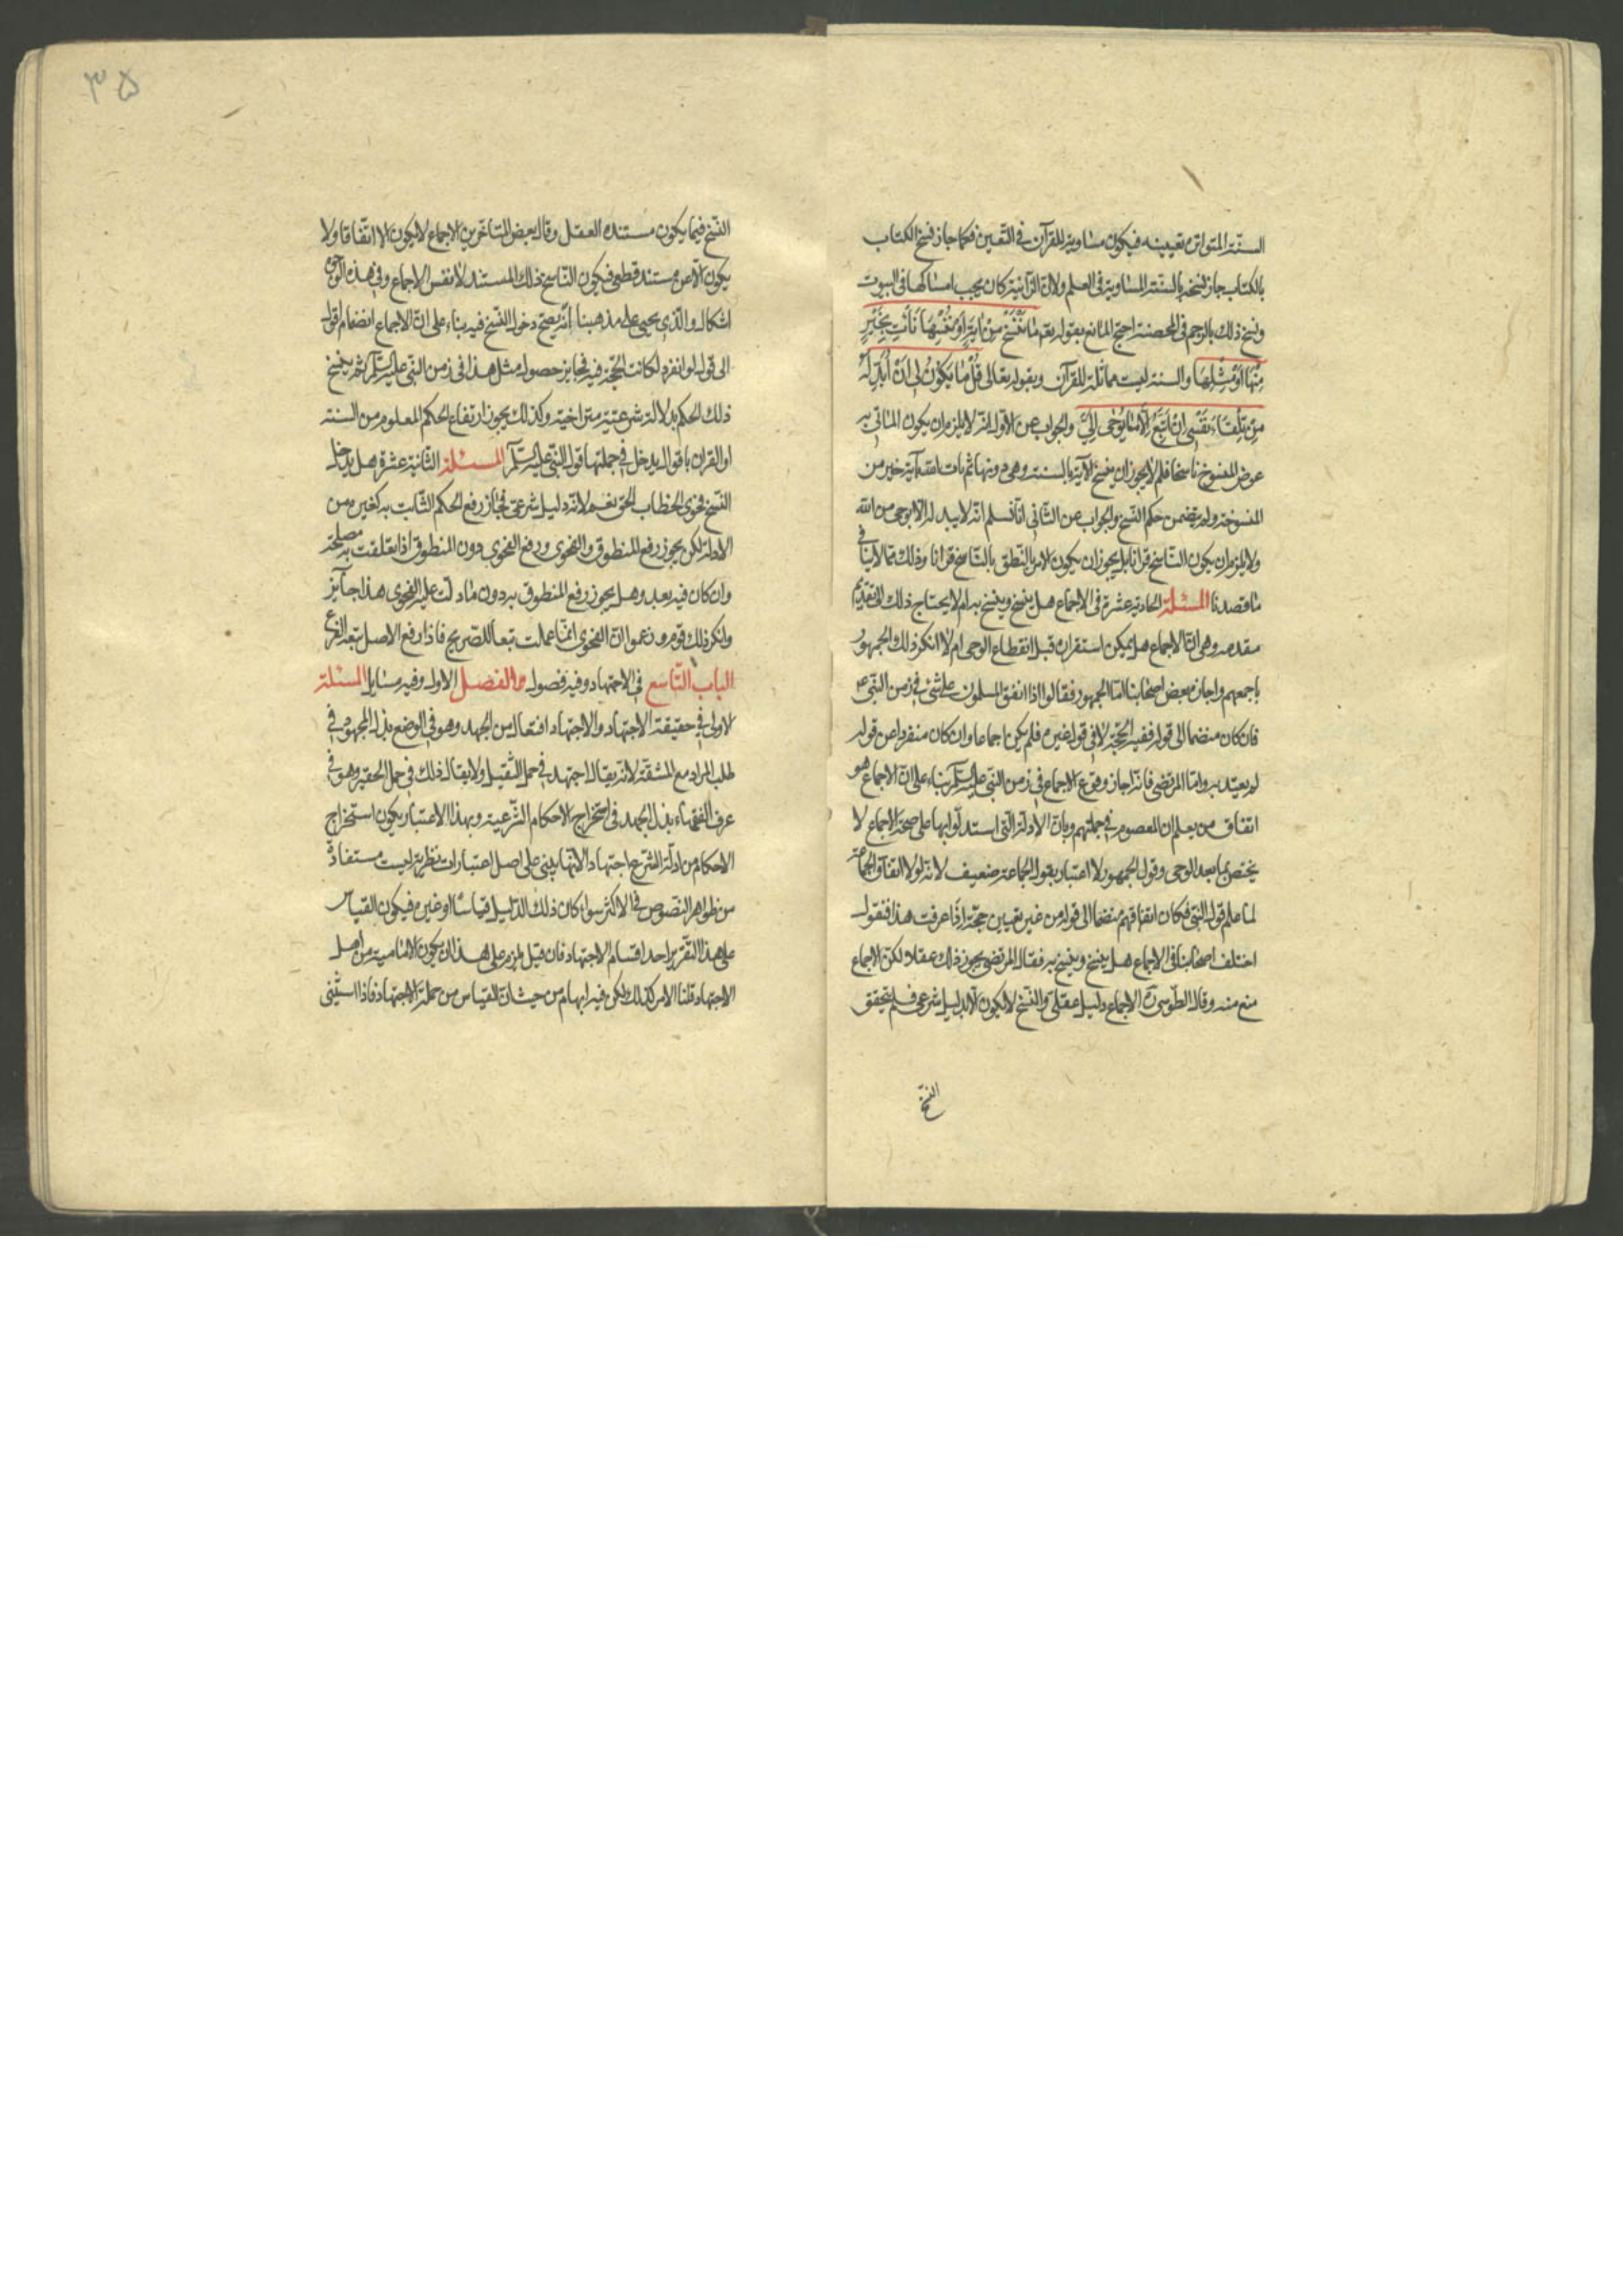 السنّة المتواترة يقينية فيكون مساوية للقرآن في اليقين فكما جاز نسخ الكتاب
بالكتاب جاز نسخه بالسنة المساوية في العلم ولان الزانية كان يجب امساكها في البيوت
ونسخ ذلك بالرجم في المحصنة احتج المانع بقوله تعم مَا نَنْسَخْ مِنْ آيَةٍ أَوْ نُنْسِهَا نَأْتِ بِخَيْرٍ
مِنْهَا أَوْ مِثْلِهَا والسنة ليست مماثلة للقرآن وبقوله تعالى قُلْ مَا يَكُونُ لِي أَنْ أُبَدِّلَهُ
مِنْ تِلْقَاءِ نَفْسِي اِنْ اَتَّبِعُ اِلَّا مَا يُوحَى اِلَيَّ والجواب عن الاول انه لا يلزم ان يكون الماتي به
عوض المنسوخ ناسخا فلم لا يجوز ان ينسخ الآية بالسنة وهي دونها ثم يات الله بآية خير من
المنسوخة ولم يتضمن حكم النسخ والجواب عن الثاني انا نسلم انه لا يبدله الا بوحي من الله
ولا يلزم ان يكون الناسخ قرانا بل يجوز ان يكون الامر بالنطق بالناسخ قرانا وذلك مما لا ينافي
ما قصدنا المسئلة الحادية عشرة في الاجماع هل ينسخ وينسخ به ام لا يحتاج ذلك الى تقديم
مقدمه وهي انّ الاجماع هل يمكن استقراره قبل انقطاع الوحي ام لا انكر ذلك الجمهور
باجمعهم واجازه بعض اصحابنا امّا الجمهور فقالوا اذا اتفق المسلمون على شئ في زمن النبي ع
فان كان منضما الى قوله ففيه الحجّة لا في قول غيره فلم يكن اجماعا وان كان منفردا عن قوله
لم يعتد به وامّا المرتضى فانّه اجاز وقوع الاجماع في زمن النبي عليه السلم بناء على انّ الاجماع هو
اتفاق من يعلم ان المعصوم في جملتهم وبان الادلة التي استدلّوا بها على صحة الاجماع لا
يختص بما بعد الوحي وقول الجمهور لا اعتبار بقول الجماعة ضعيف لانه لولا اتفاق الجماعة
لما علم قول النبي فكان اتفاقهم منضما الى قوله من غير تعيين حجّة إذا عرفت هذا فنقول
اختلف اصحابنا في الاجماع هل ينسخ وينسخ به فقال المرتضى يجوز ذلك عقلا لكن الاجماع
منع منه وقال الطّوسي ره الاجماع دليل عقلي والنّسخ لا يكون الّا بدليل شرعي فلم يتحقق
النسخ
۳۵
النسخ فيما يكون مستنده العقل وقال بعض المتاخرين الاجماع لا يكون الا اتفاقا ولا
يكون الّا عن مستند قطعي فيكون النّاسخ ذلك المستند لا نفس الاجماع وفي هذه الوجوه
اشكال والّذي يجيى على مذهبنا انّه يصحّ دخول النسخ فيه بناء على انّ الاجماع انضمام اقوال
الى قول لو انفرد لكانت الحجّة فيه فجايز حصول مثل هذا في زمن النبي عليه السلم ثم ينسخ
ذلك الحكم بدلالة شرعيّة متراخية وكذلك يجوز ارتفاع الحكم المعلوم من السنة
او القران باقوال يدخل في جملتها قول النبي عليه السلم المسئلة الثّانية عشرة هل يدخل
النّسخ فحوى الخطاب الحق نعم لانّه دليل شرعي فجاز رفع الحكم الثّابت به كغيره من
الادلة لكن يجوز رفع المنطوق والفحوى ورفع الفحوى دون المنطوق اذا تعلقت به مصلحة
وان كان فيه بعد وهل يجوز رفع المنطوق به دون ما دلت عليه الفحوى هذا جايز
وانكر ذلك قوم وزعموا انّ الفحوى انّما عملت تبعا للصّريح فاذا رفع الاصل تبعه الفرع
الباب التّاسع في الاجتهاد وفيه فصول الفصل الاول وفيه مسايل المسئلة
الاولى في حقيقة الاجتهاد والاجتهاد افتعال من الجهد وهو في الوضع بذل المجهود في
طلب المراد مع المشقّة لانه يقال اجتهد في حمل الثّقيل ولا يقال ذلك في حمل الحقير وهو في
عرف الفقهاء بذل الجهد في استخراج الاحكام الشّرعية وبهذا الاعتبار يكون استخراج
الاحكام من ادلّة الشّرع اجتهادا لانّها يبنى على اصل اعتبارات نظرية ليست مستفادة
من ظواهر النّصوص في الاكثر سواء كان ذلك الدّليل قياسًا او غيره فيكون القياس
على هذا التّقرير احد اقسام الاجتهاد فان قيل يلزم على هذا ان يكون الامامية من اهل
الاجتهاد قلنا الامر كذلك لكن فيه ايهام من حيث انّ القياس من جملة الاجتهاد فاذا استثنى